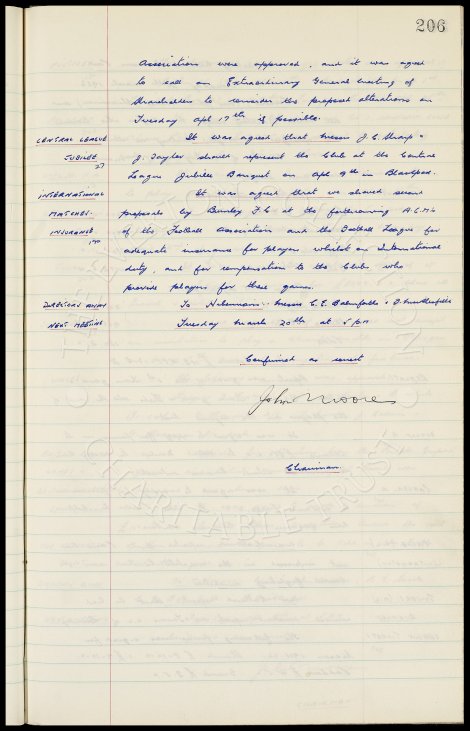 206
Associations were approved, and it was agreed
to call an Extraordinary General Meeting of
Shareholders to consider the proposed alterations on
Tuesday Apl 17th if possible.
CENTRAL LEAGUE It was agreed that Messrs J.C. Sharp &
JUBILEE J. Taylor should represent the Club at the Central
27
League Jubilee Banquet on Apl 9th in Blackpool.
INTERNATIONAL It was agreed that we should second
MATCHES. proposals by Burnley F.C at the forthcoming A.G.M's
INSURANCE of the Football Association and the Football League for
adequate insurance for players whilst on International
duty, and for compensation to the Clubs who
provide players for these games.
DIRECTORS AWAY To Hibernians: Messrs C.E. Balmforth &
NEXT MEETING Tuesday March 20th at 5 pm
Confirmed as correct
John Moores
Chairman.
CHARITABLE TRUST